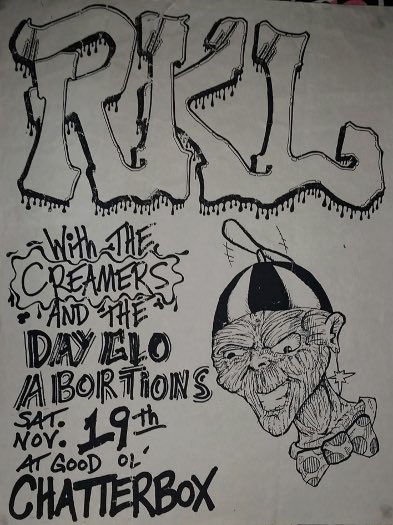 RKL
With THE
CREAMERS
AND THE
DAY GLO
ABORTIONS
SAT.
NOV. 19th
AT GOOD OL'
CHATTERBOX